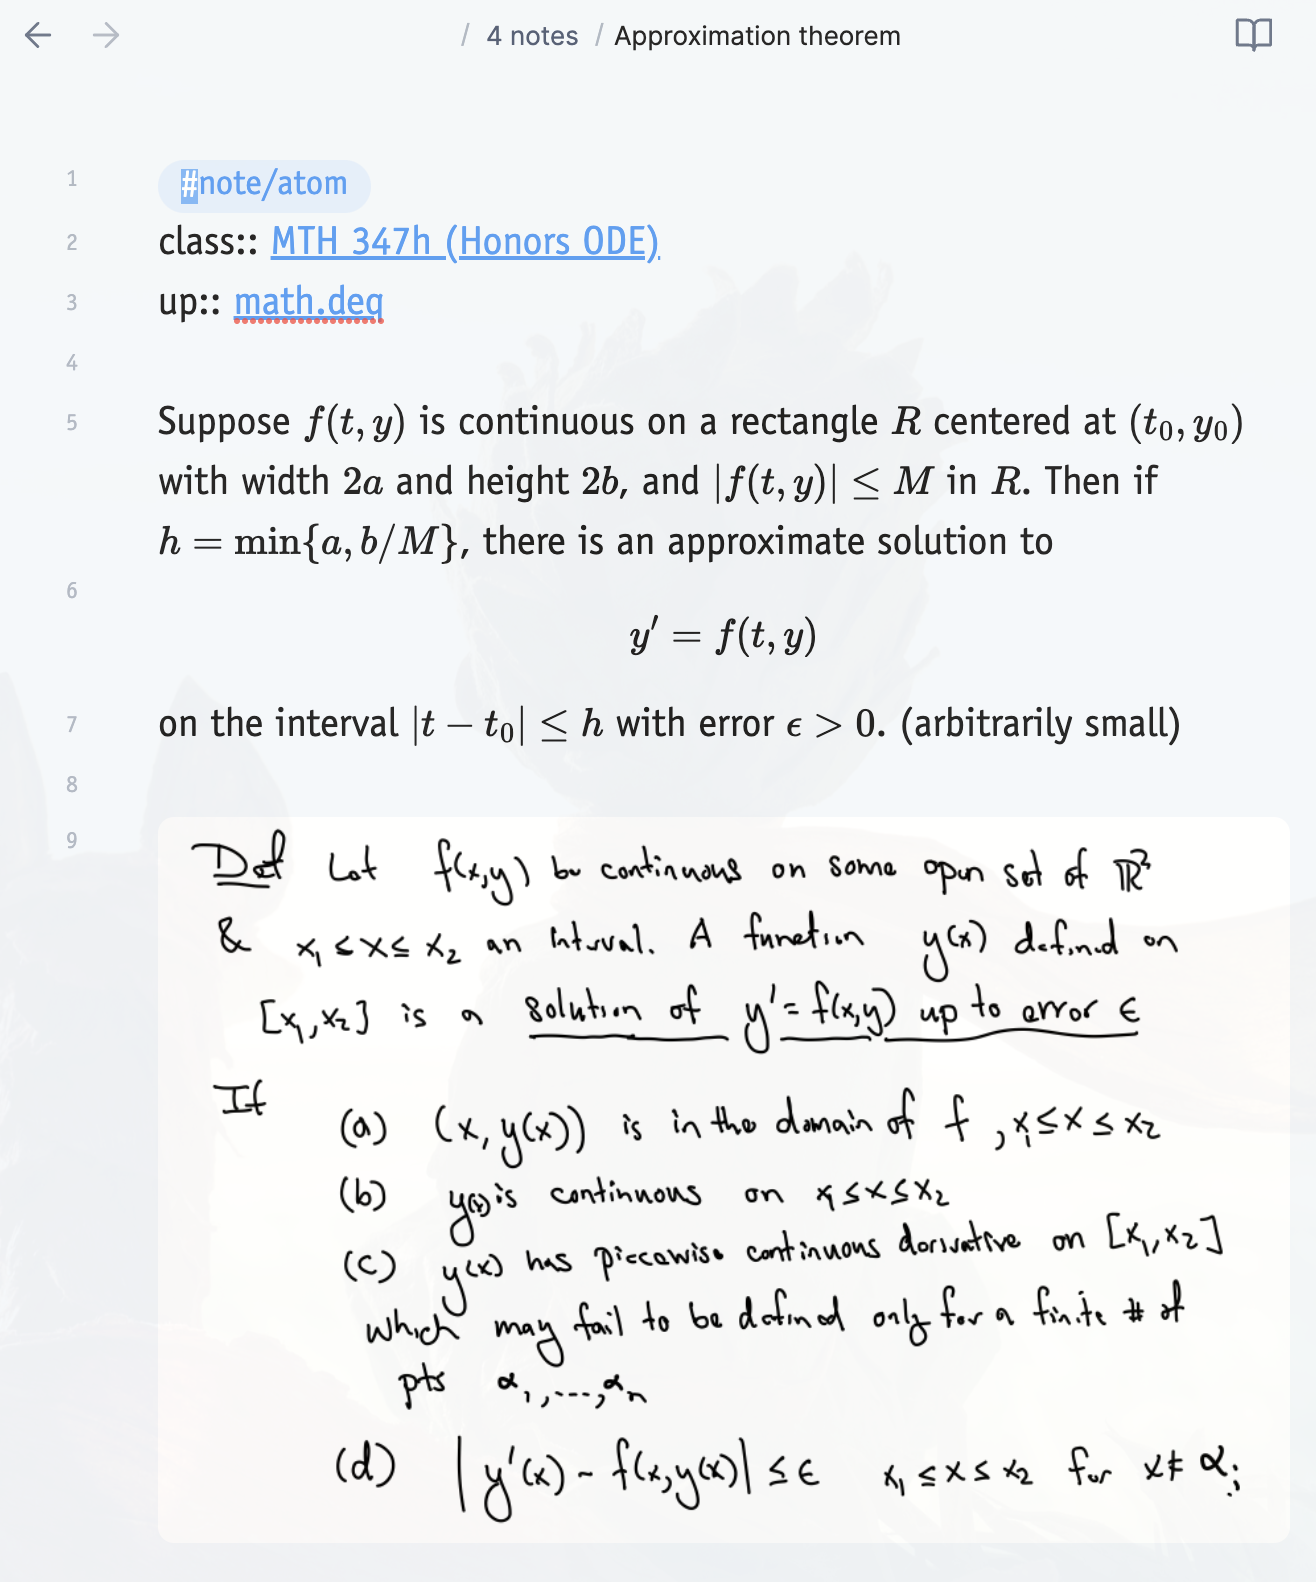 / 4 notes / Approximation theorem
1 #note/atom
2 class:: MTH 347h (Honors ODE)
3 up:: math.deq
4
5 Suppose f(t, y) is continuous on a rectangle R centered at (t₀, y₀)
with width 2a and height 2b, and |f(t, y)| ≤ M in R. Then if
h = min{a, b/M}, there is an approximate solution to
6
y′ = f(t, y)
7 on the interval |t − t₀| ≤ h with error ϵ > 0. (arbitrarily small)
8
9
Def Let f(x,y) be continuous on some open set of ℝ²
& x₁ ≤ x ≤ x₂ an interval. A function y(x) defined on
[x₁, x₂] is a solution of y' = f(x,y) up to error ϵ
If
(a) (x, y(x)) is in the domain of f , x₁ ≤ x ≤ x₂
(b) y(x) is continuous on x₁ ≤ x ≤ x₂
(c) y(x) has piecewise continuous derivative on [x₁, x₂]
which may fail to be defined only for a finite # of
pts α₁, ..., αₙ
(d) |y'(x) - f(x, y(x))| ≤ ϵ x₁ ≤ x ≤ x₂ for x ≠ αᵢ